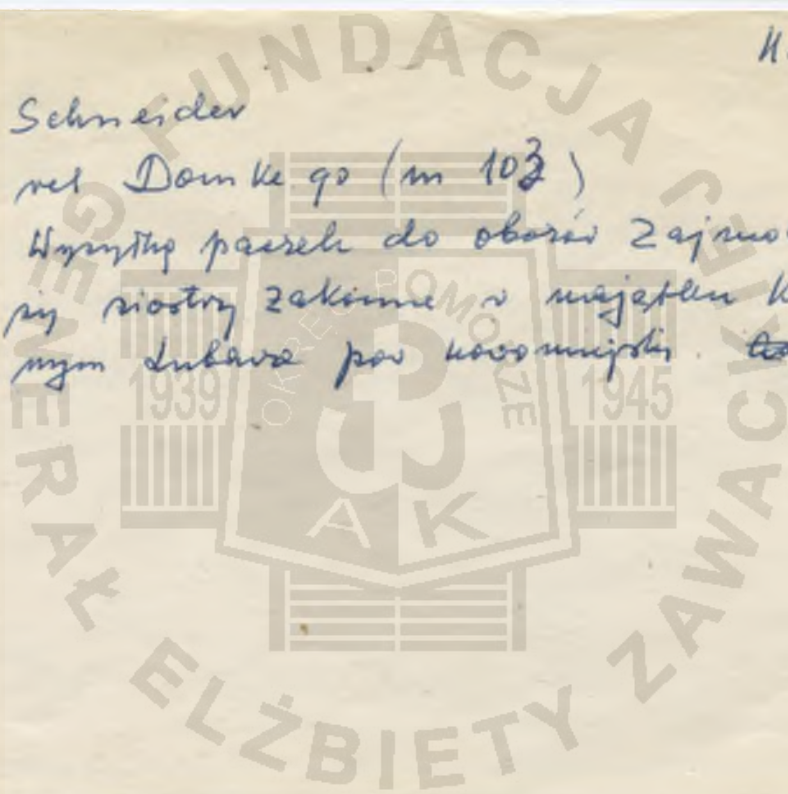 Schneider
rel Domkego (m 103)
Wysyłką paczek do obozów zajmo
się siostry zakonne w majątku K
nym Lubawa pow nowomiejski.
FUNDACJA
GENERAŁ ELŻBIETY ZAWACKIEJ
OKRĘG POMORZE
1939
1945
AK